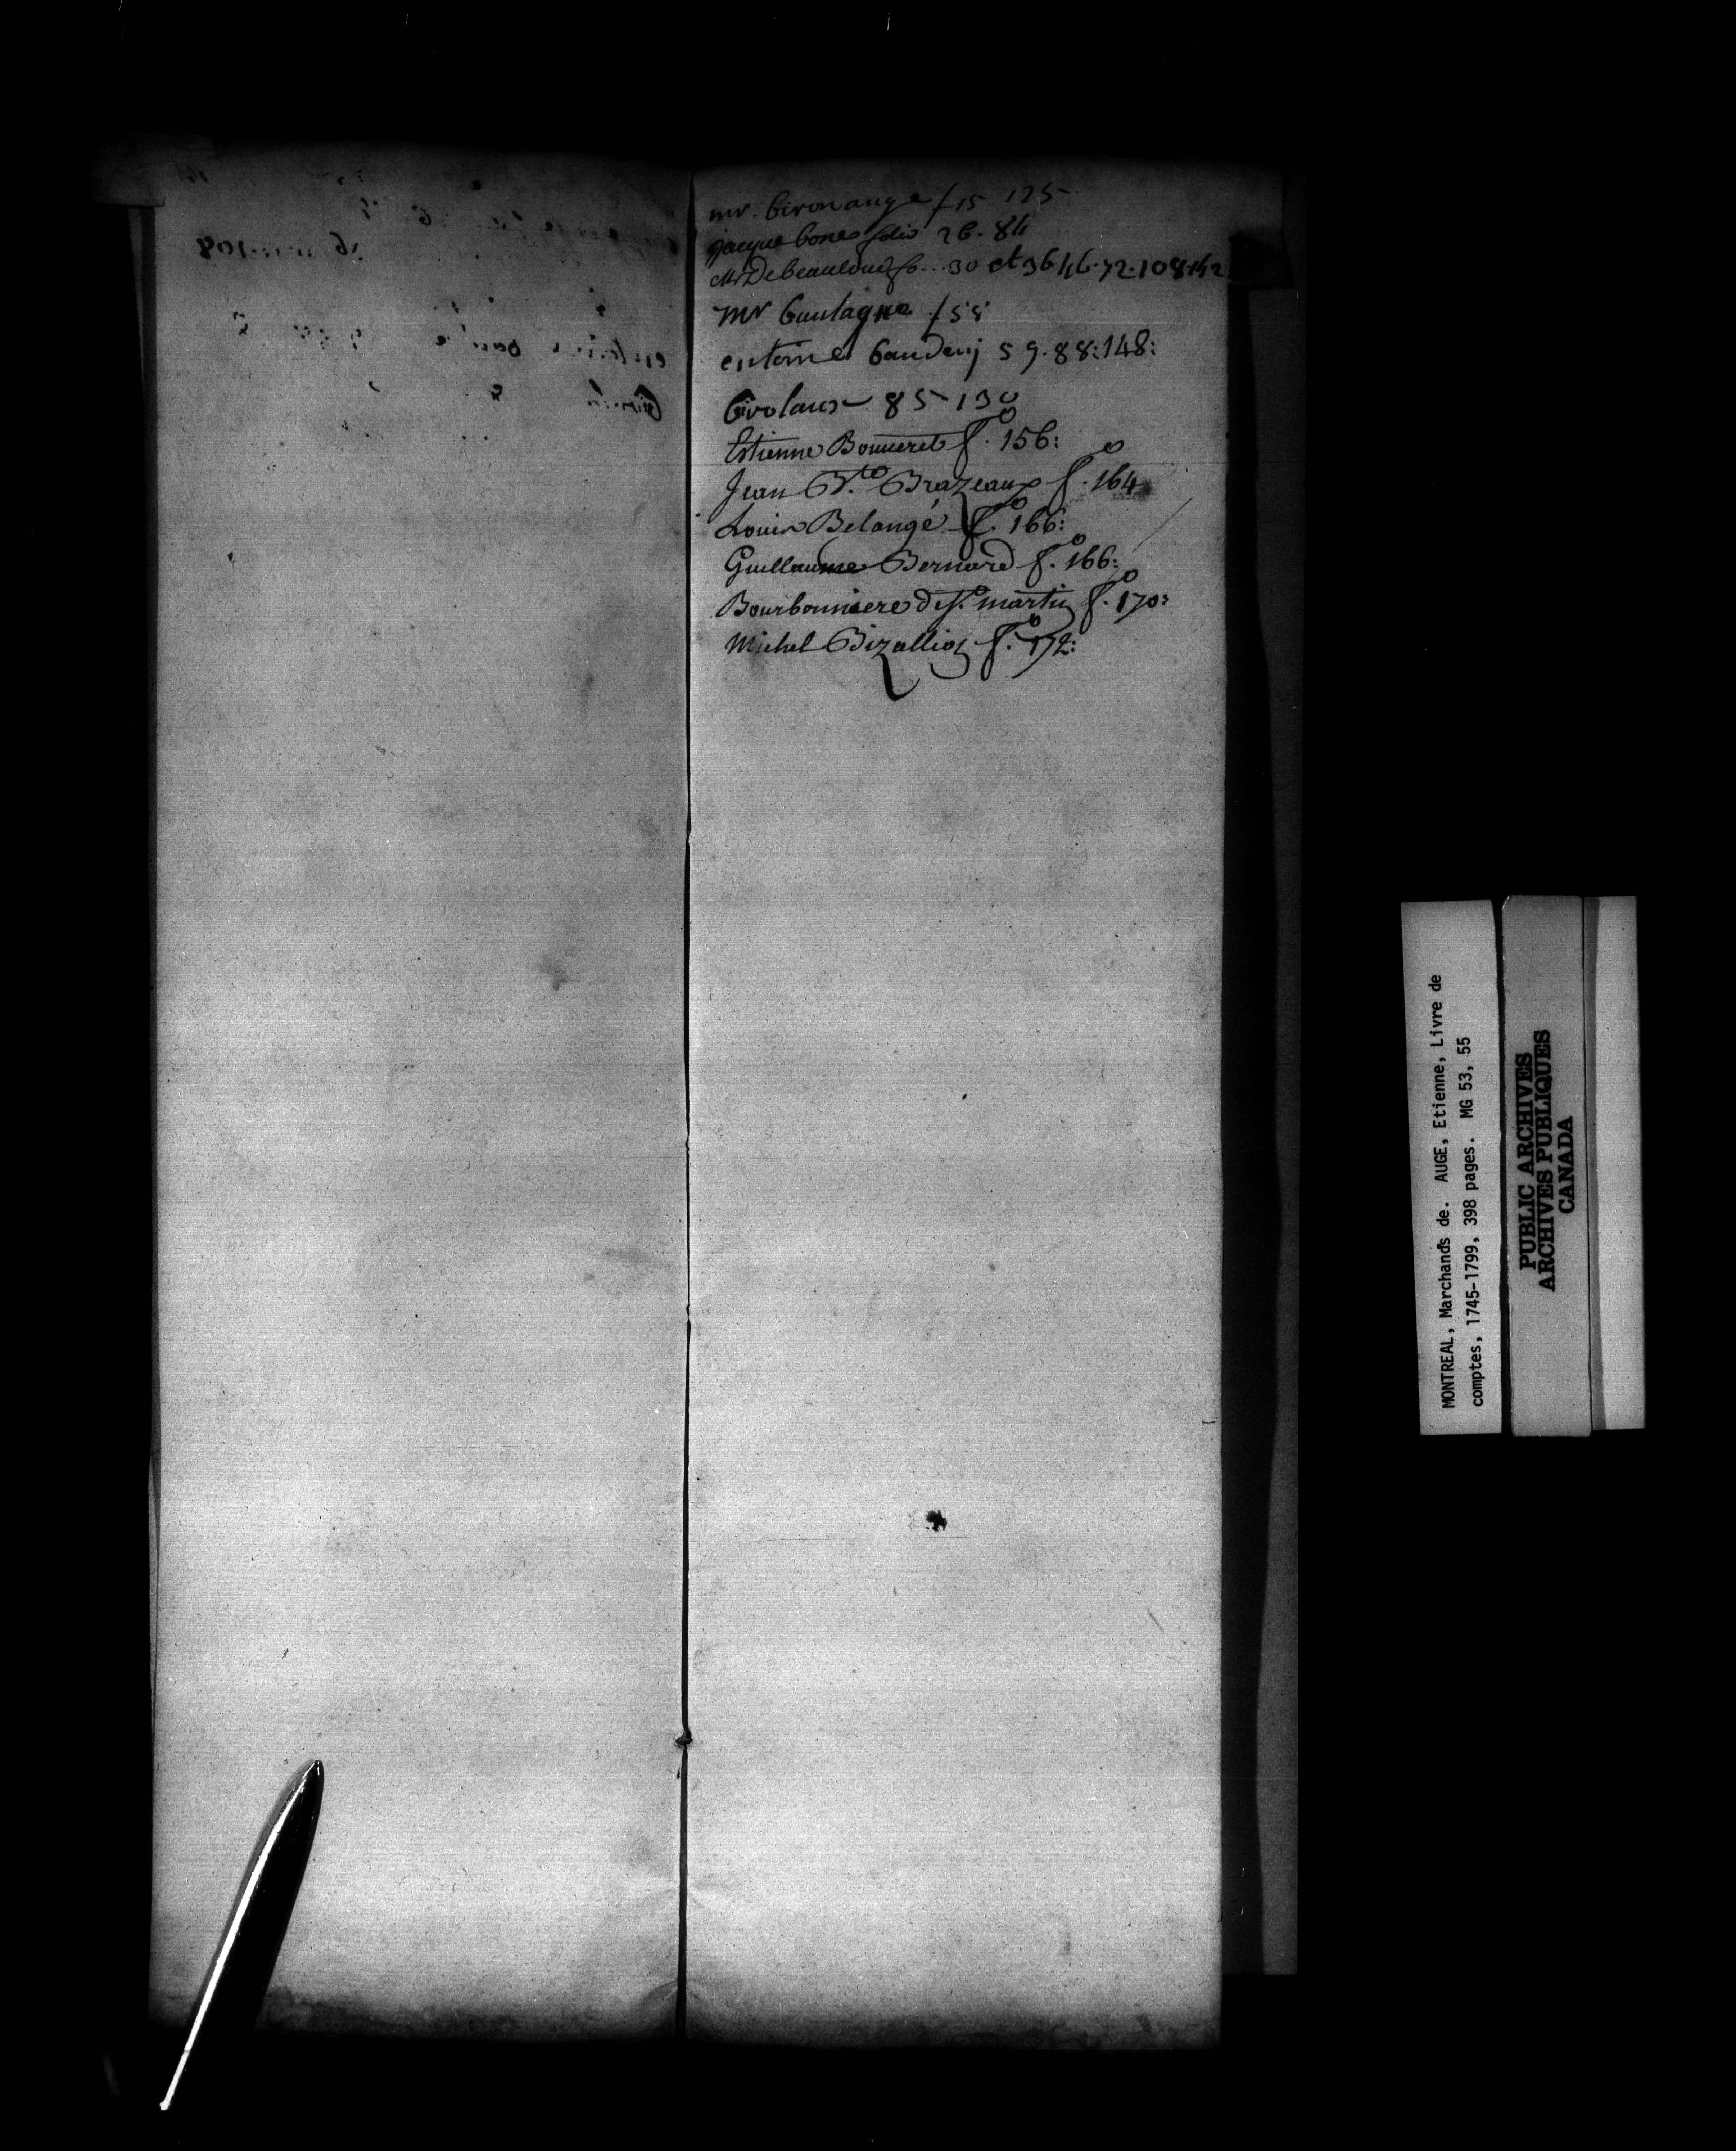 mr. bironange f 15 125
jacque bones folio 26. 84
Mr Debeaulond fo... 30 et 36 46. 72. 108. 142
mr bentagne f 55
entoine baudenj 59. 88: 148:
birolaux 85 - 130
Estienne Bonneret f.o 156:
Jean B.te Brazeaux f.o 164
Louis Belangé f.o 166:
Guillaume Bernard f.o 166:
Bourbonniere de St. martin f.o 170:
Michel Bizallion f.o 172:
MONTREAL, Marchands de. AUGE, Etienne, Livre de
comptes, 1745-1799, 398 pages. MG 53, 55
PUBLIC ARCHIVES
ARCHIVES PUBLIQUES
CANADA